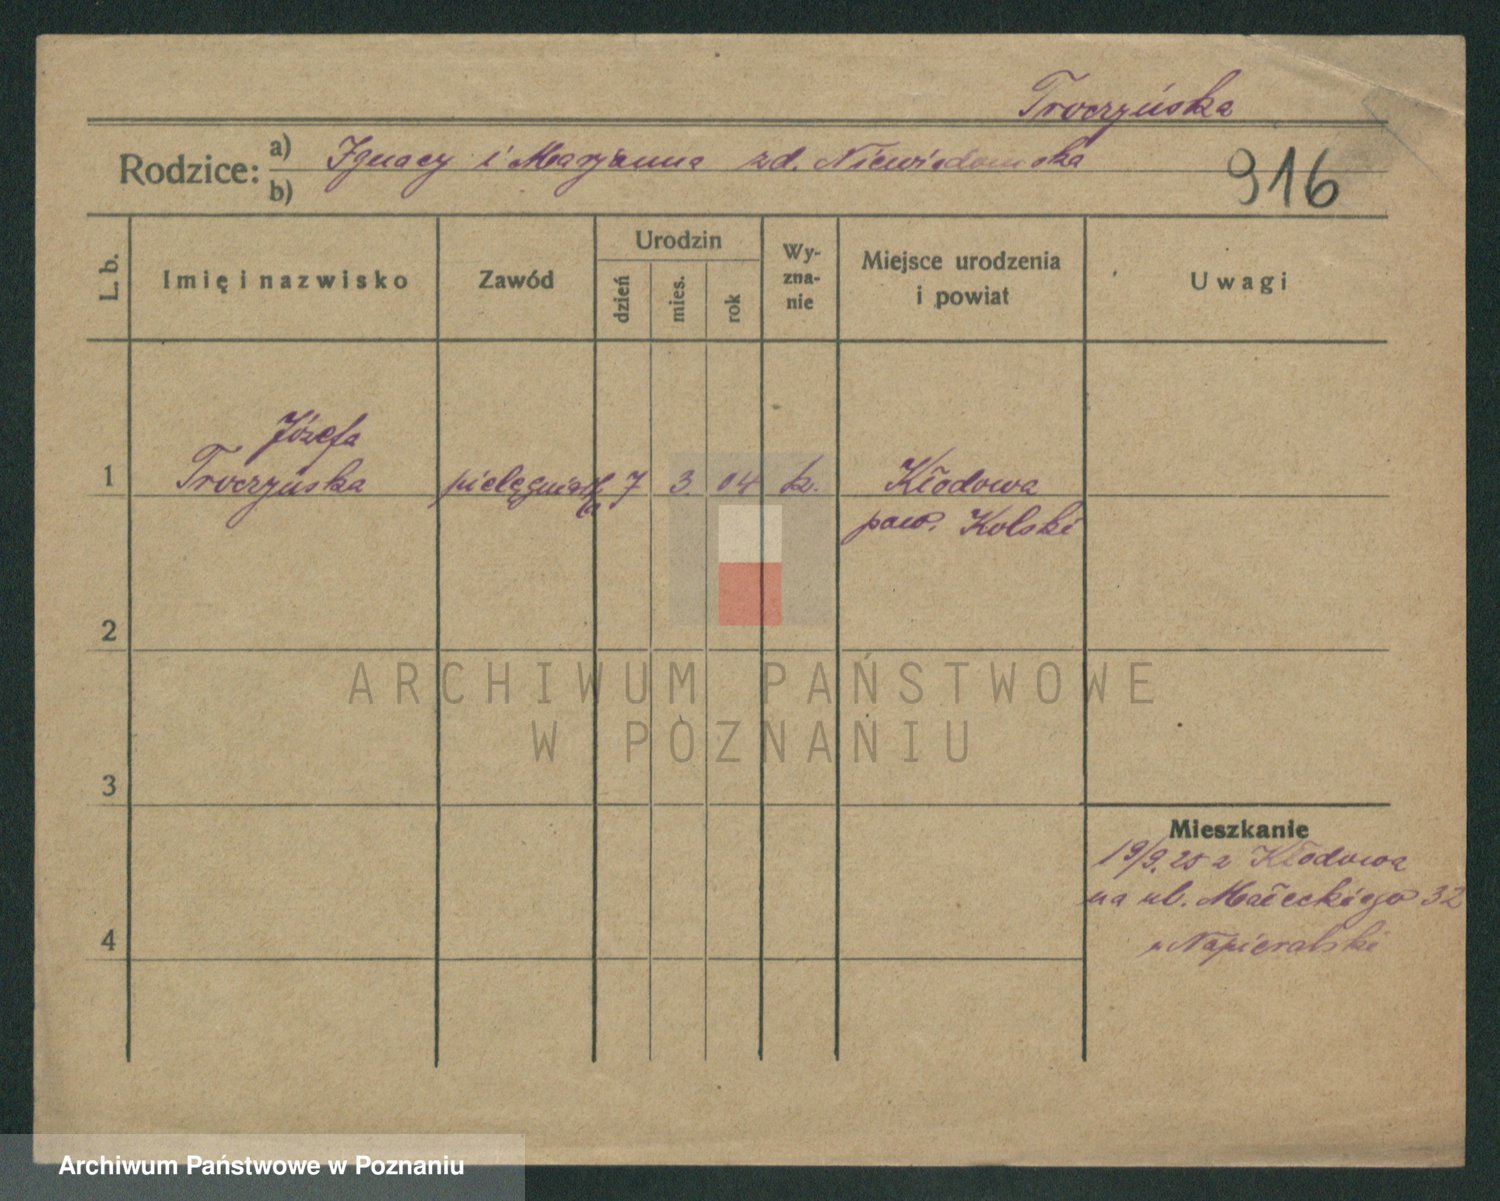 Troczyńska
Rodzice: a) Ignacy i Marjanna zd. Niewiadomska
b)
916
L. b.
Imię i nazwisko
Zawód
Urodzin
dzień
mies.
rok
Wy-
zna-
nie
Miejsce urodzenia
i powiat
Uwagi
Józefa
1 Troczyńska pielęgniarka 7 3. 04 k. Kłodowa
pow. Kolski
2
3
4
Mieszkanie
19/9. 25 z Kłodowa
na ul. Małeckiego 32
u Napieralski
ARCHIWUM PAŃSTWOWE
W POZNANIU
Archiwum Państwowe w Poznaniu